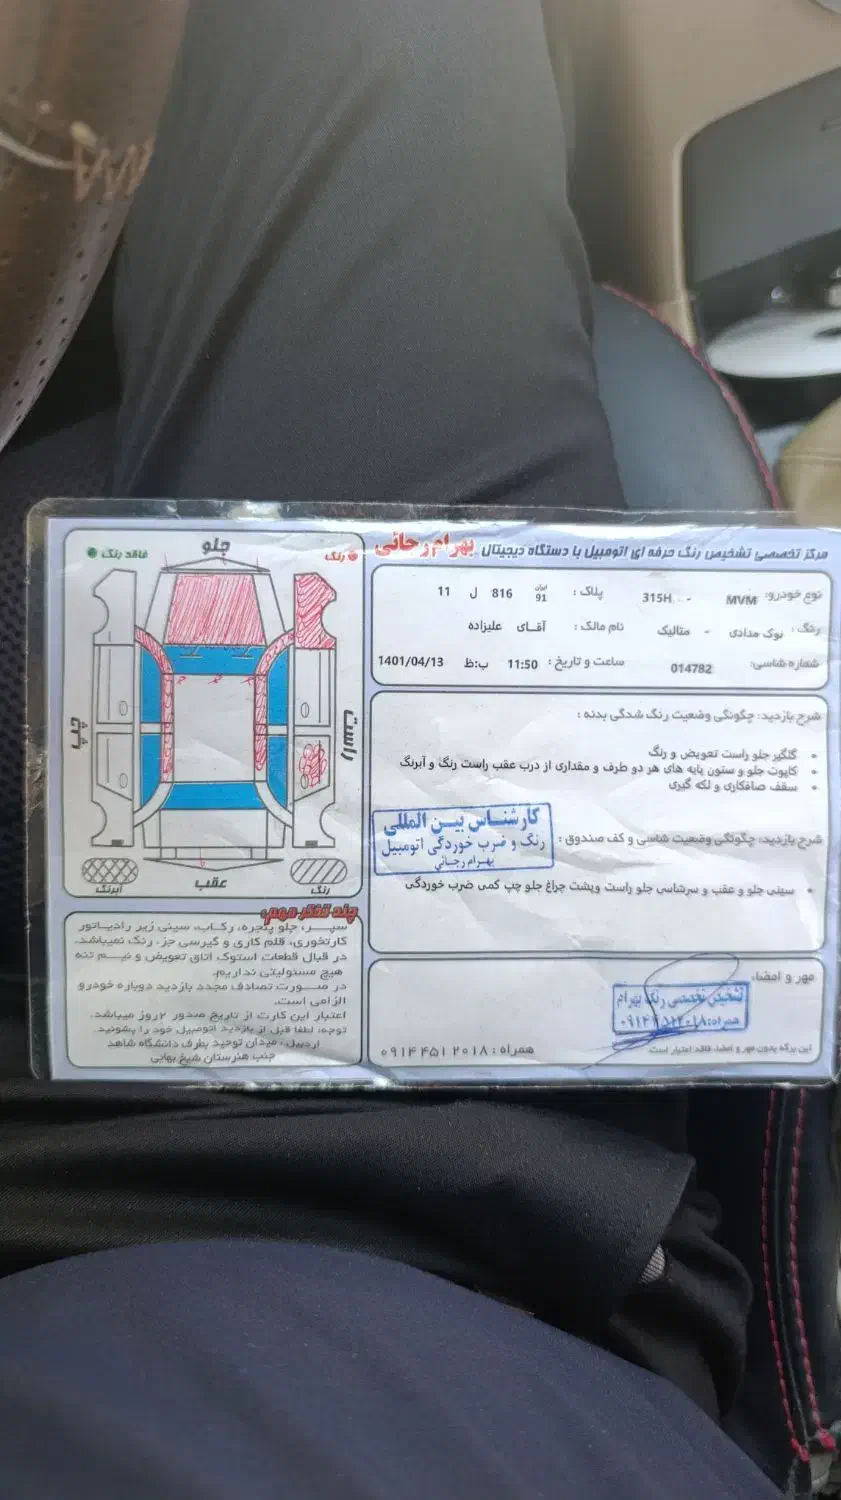 مرکز تخصصی تشخیص رنگ حرفه ای اتومبیل با دستگاه دیجیتال بهرام رجائی
نوع خودرو: MVM - 315H پلاک: ایران 91 816 ل 11
رنگ: نوک مدادی - متالیک نام مالک: آقای علیزاده
شماره شاسی: 014782 ساعت و تاریخ: 11:50 ب:ظ 1401/04/13
شرح بازدید: چگونگی وضعیت رنگ شدگی بدنه:
• گلگیر جلو راست تعویض و رنگ
• کاپوت جلو و ستون پایه های هر دو طرف و مقداری از درب عقب راست رنگ و آبرنگ
• سقف صافکاری و لکه گیری
شرح بازدید: چگونگی وضعیت شاسی و کف صندوق:
کارشناس بین المللی
رنگ و ضرب خوردگی اتومبیل
بهرام رجائی
• سینی جلو و عقب و سرشاسی جلو راست وپشت چراغ جلو چپ کمی ضرب خوردگی
مهر و امضاء
تشخیص تخصصی رنگ بهرام
همراه: ۰۹۱۴۴۵۱۲۰۱۸
این برگه بدون مهر و امضاء فاقد اعتبار است.
همراه: ۰۹۱۴ ۴۵۱ ۲۰۱۸
رنگ
جلو
فاقد رنگ
راست
چپ
رنگ
عقب
آبرنگ
چند تذکر مهم:
سپر، جلو پنجره، رکاب، سینی زیر رادیاتور
کارتخوری، قلم کاری و گیرسی جز، رنگ نمیباشد.
در قبال قطعات استوک اتاق تعویض و نیم تنه
هیچ مسئولیتی نداریم.
در صورت تصادف مجدد بازدید دوباره خودرو
الزامی است.
اعتبار این کارت از تاریخ صدور ۲ روز میباشد.
توجه: لطفا قبل از بازدید اتومبیل خود را بشوئید.
اردبیل، میدان توحید بطرف دانشگاه شاهد
جنب هنرستان شیخ بهایی